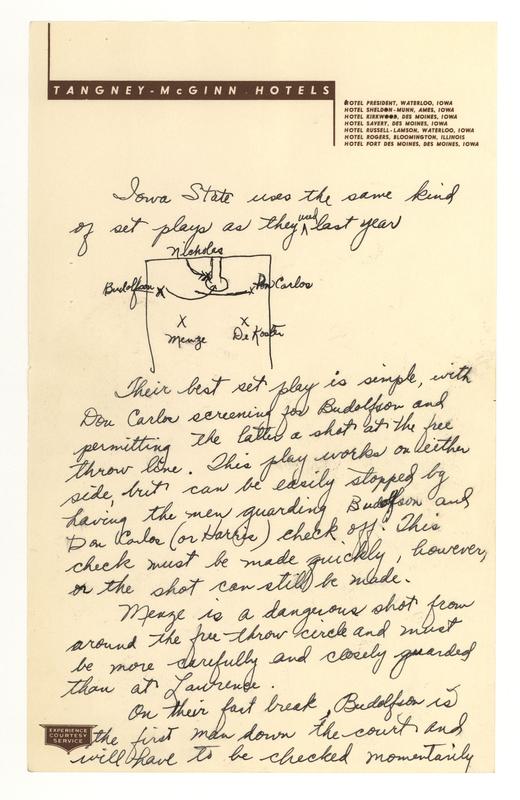 TANGNEY-McGINN HOTELS
HOTEL PRESIDENT, WATERLOO, IOWA
HOTEL SHELDON-MUNN, AMES, IOWA
HOTEL KIRKWOOD, DES MOINES, IOWA
HOTEL SAVERY, DES MOINES, IOWA
HOTEL RUSSELL-LAMSON, WATERLOO, IOWA
HOTEL ROGERS, BLOOMINGTON, ILLINOIS
HOTEL FORT DES MOINES, DES MOINES, IOWA
Iowa State uses the same kind
of set plays as they used last year
Nicholas
Budolfson x x Don Carlos
x x
Menze De Koster
Their best set play is simple, with
Don Carlos screening for Budolfson and
permitting the latter a shot at the free
throw line. This play works on either
side, but can be easily stopped by
having the men guarding Budolfson and
Don Carlos (or Harris) check off. This
check must be made quickly, however,
or the shot can still be made.
Menze is a dangerous shot from
around the free throw circle and must
be more carefully and closely guarded
than at Lawrence.
On their fast break, Budolfson is
the first man down the court and
will have to be checked momentarily
EXPERIENCE
COURTESY
SERVICE